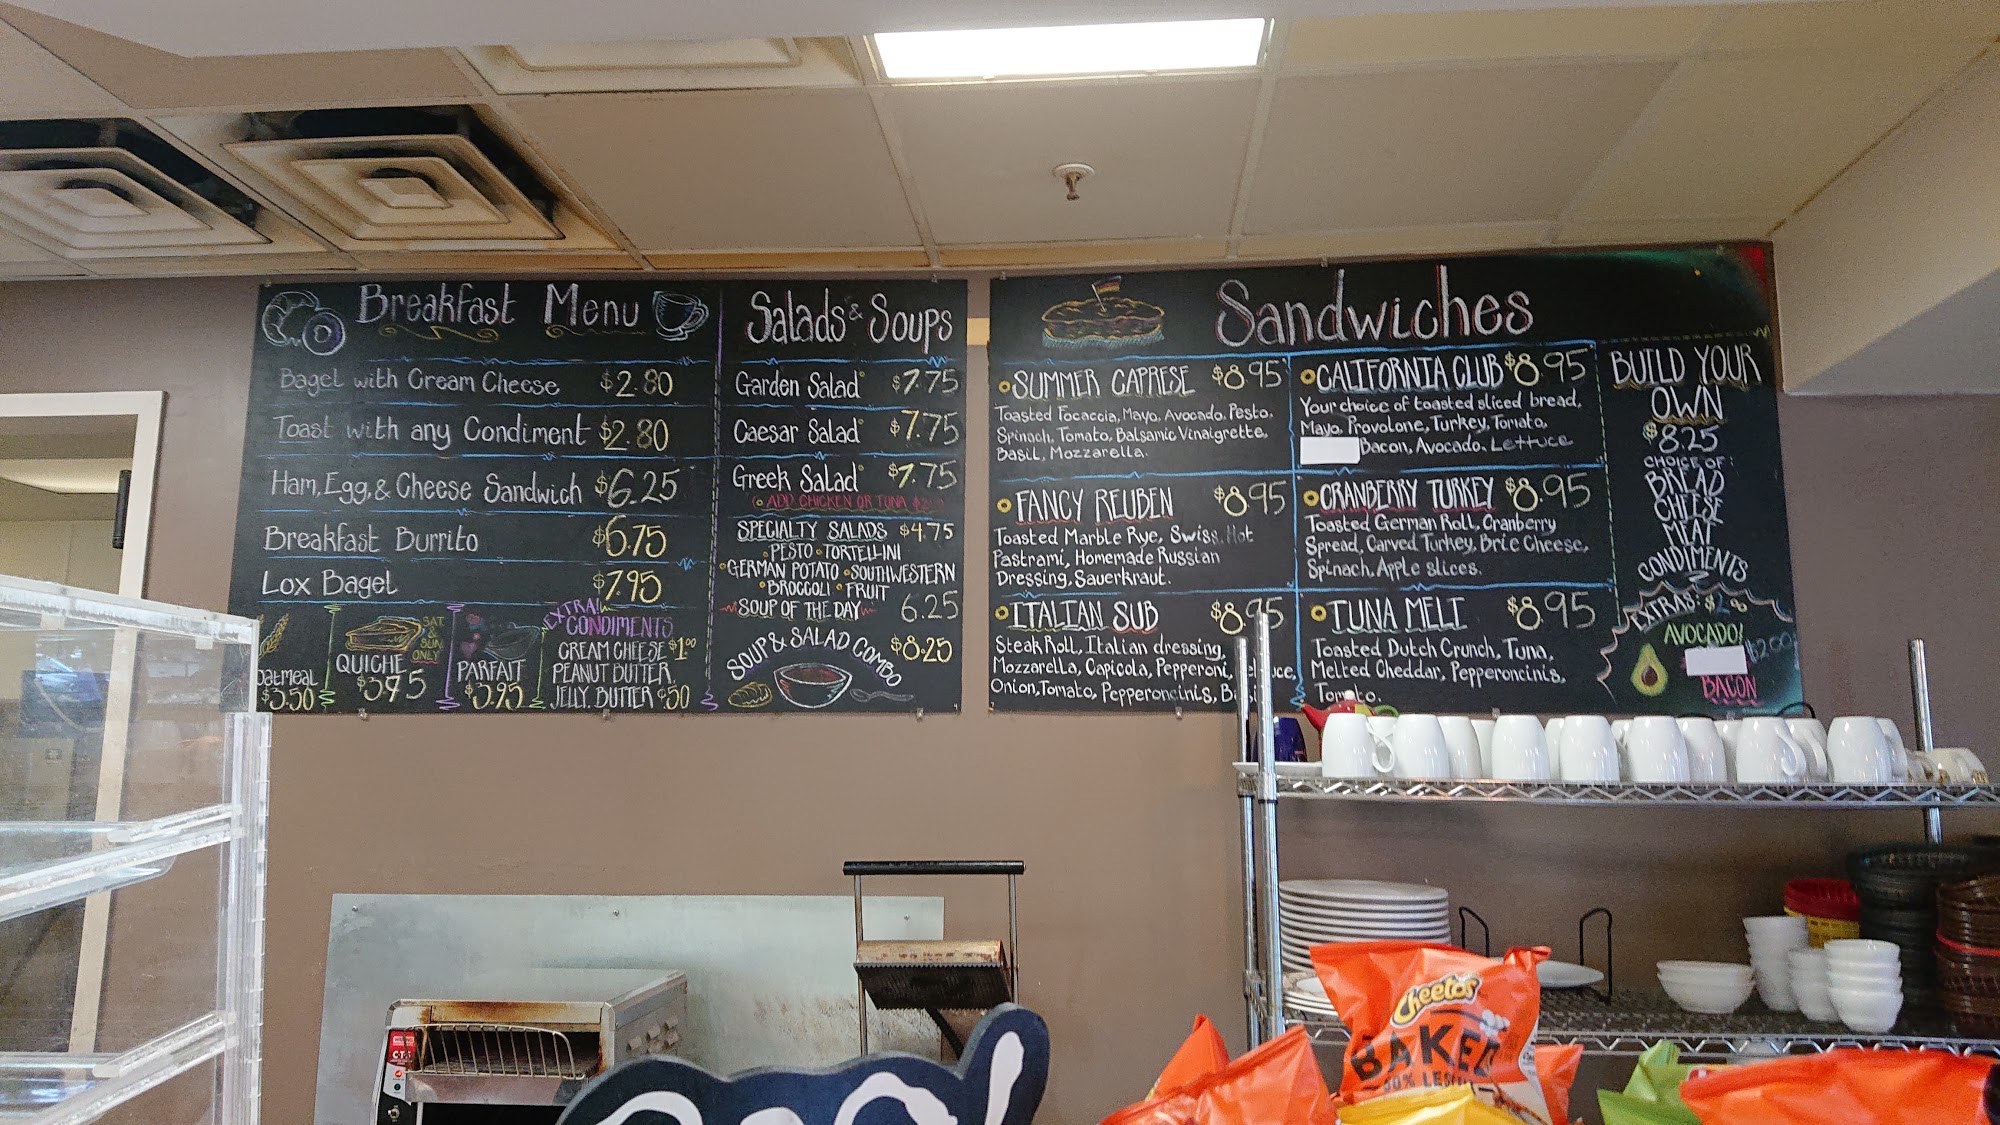 Breakfast Menu
Bagel with Cream Cheese $2.80
Toast with any Condiment $2.80
Ham, Egg, & Cheese Sandwich $6.25
Breakfast Burrito $6.75
Lox Bagel $7.95
Oatmeal
$3.50
SAT. & SUN ONLY
QUICHE
$3.95
PARFAIT
$3.95
EXTRA!
CONDIMENTS
CREAM CHEESE $1.00
PEANUT BUTTER,
JELLY, BUTTER $.50
Salads & Soups
Garden Salad $7.75
Caesar Salad $7.75
Greek Salad $7.75
ADD CHICKEN OR TUNA
SPECIALTY SALADS $4.75
PESTO TORTELLINI
GERMAN POTATO SOUTHWESTERN
BROCCOLI FRUIT
SOUP OF THE DAY 6.25
SOUP & SALAD COMBO $8.25
Sandwiches
SUMMER CAPRESE $8.95
Toasted Focaccia, Mayo, Avocado, Pesto,
Spinach, Tomato, Balsamic Vinaigrette,
Basil, Mozzarella.
FANCY REUBEN $8.95
Toasted Marble Rye, Swiss, Hot
Pastrami, Homemade Russian
Dressing, Sauerkraut.
ITALIAN SUB $8.95
Steak Roll, Italian dressing,
Mozzarella, Capicola, Pepperoni,
Onion, Tomato, Pepperoncinis,
CALIFORNIA CLUB $8.95
Your choice of toasted sliced bread,
Mayo, Provolone, Turkey, Tomato,
Bacon, Avocado. Lettuce
CRANBERRY TURKEY $8.95
Toasted German Roll, Cranberry
Spread, Carved Turkey, Brie Cheese,
Spinach, Apple slices.
TUNA MELT $8.95
Toasted Dutch Crunch, Tuna,
Melted Cheddar, Pepperoncinis,
Tomato.
BUILD YOUR
OWN
$8.25
CHOICE OF:
BREAD
CHEESE
MEAT
CONDIMENTS
EXTRAS:
AVOCADO!
$2.00
BACON
C·T·1
Cheetos
BAKED